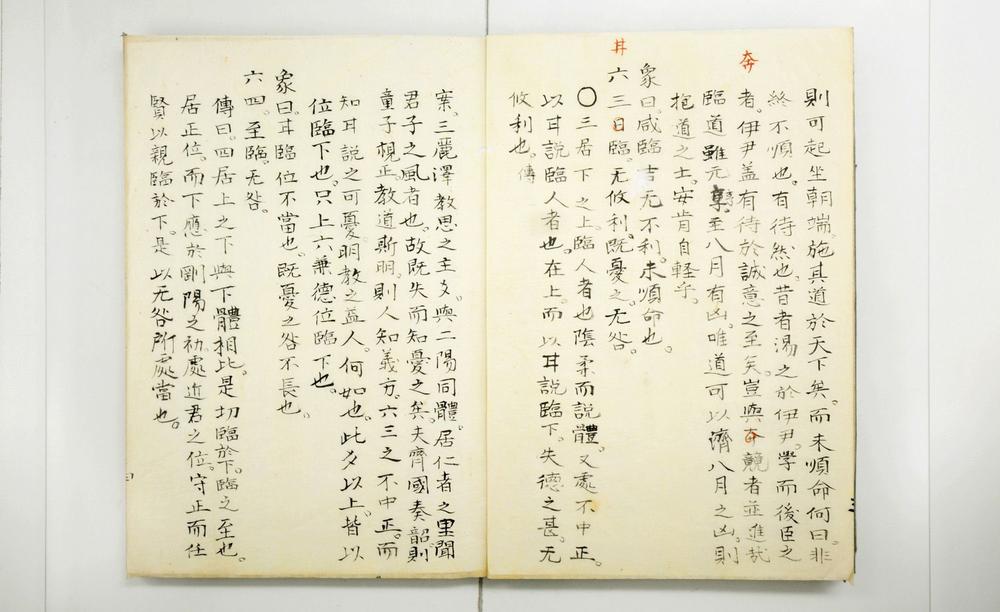 則可起坐朝端。施其道於天下矣。而未順命何曰。非
終不順也。有待然也。昔者湯之於伊尹。學而後臣之
奔
者。伊尹盖有待於誠意之至矣。豈與奔競者並進哉
臨道雖元亨至八月有凶。唯道可以濟八月之凶。則
抱道之士。安肯自輕乎。
象曰。咸臨吉无不利。未順命也。
廿
六三。甘臨。无攸利。既憂之。无咎。
〇三居下之上。臨人者也。陰柔而説體。又處不中正。
以甘説臨人者也。在上。而以甘説臨下。失德之甚。无
攸利也。傳
寀。三麗澤教思之主爻。與二陽同體。居仁者之里。聞
君子之風者也。故既失而知憂之矣。夫齊國奏韶。則
童子視正。教道斯明。則人知義方。六三之不中正。而
知甘説之可憂。明教之益人。何如也。此爻以上。皆以
位臨下也。只上六兼德位臨下也。
象曰。甘臨位不當也。既憂之咎不長也。
六四。至臨。无咎。
傳曰。四居上之下。與下體相比。是切臨於下。臨之至也。
居正位。而下應於剛陽之初。處近君之位。守正而任
賢以親臨於下。是以无咎所處當也。